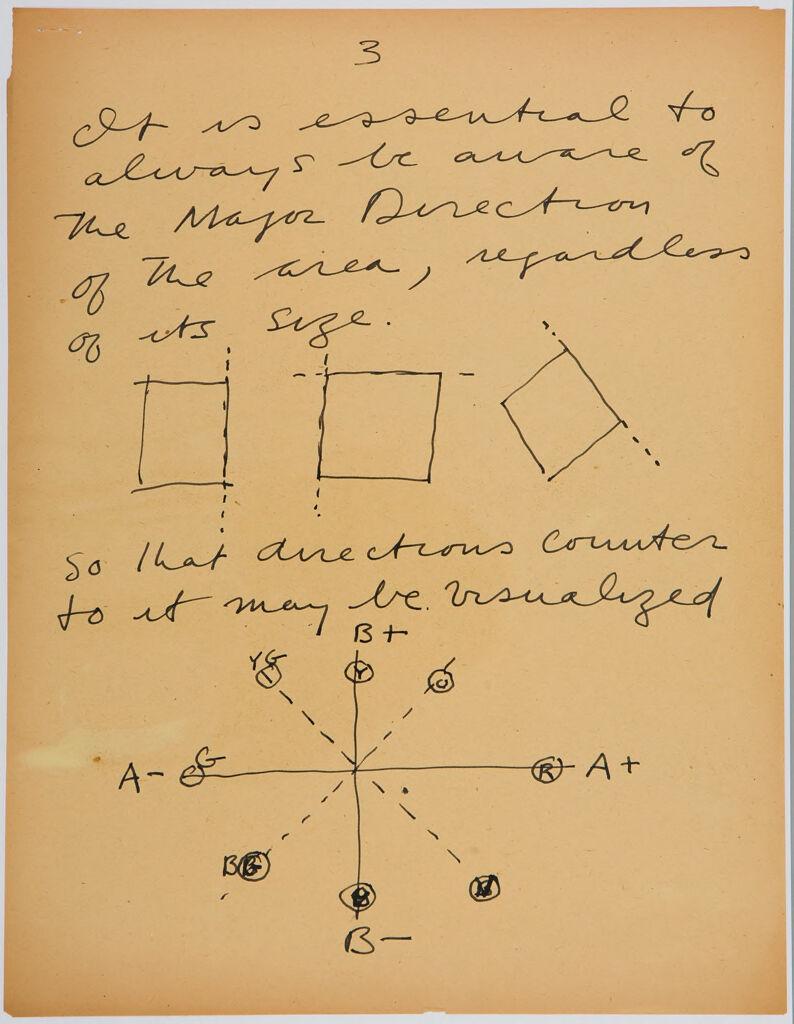 3
It is essential to
always be aware of
the Major Direction
of the area, regardless
of its size.
So that directions counter
to it may be visualized
B+
YG Y O
G
A- R A+
BG B V
B-